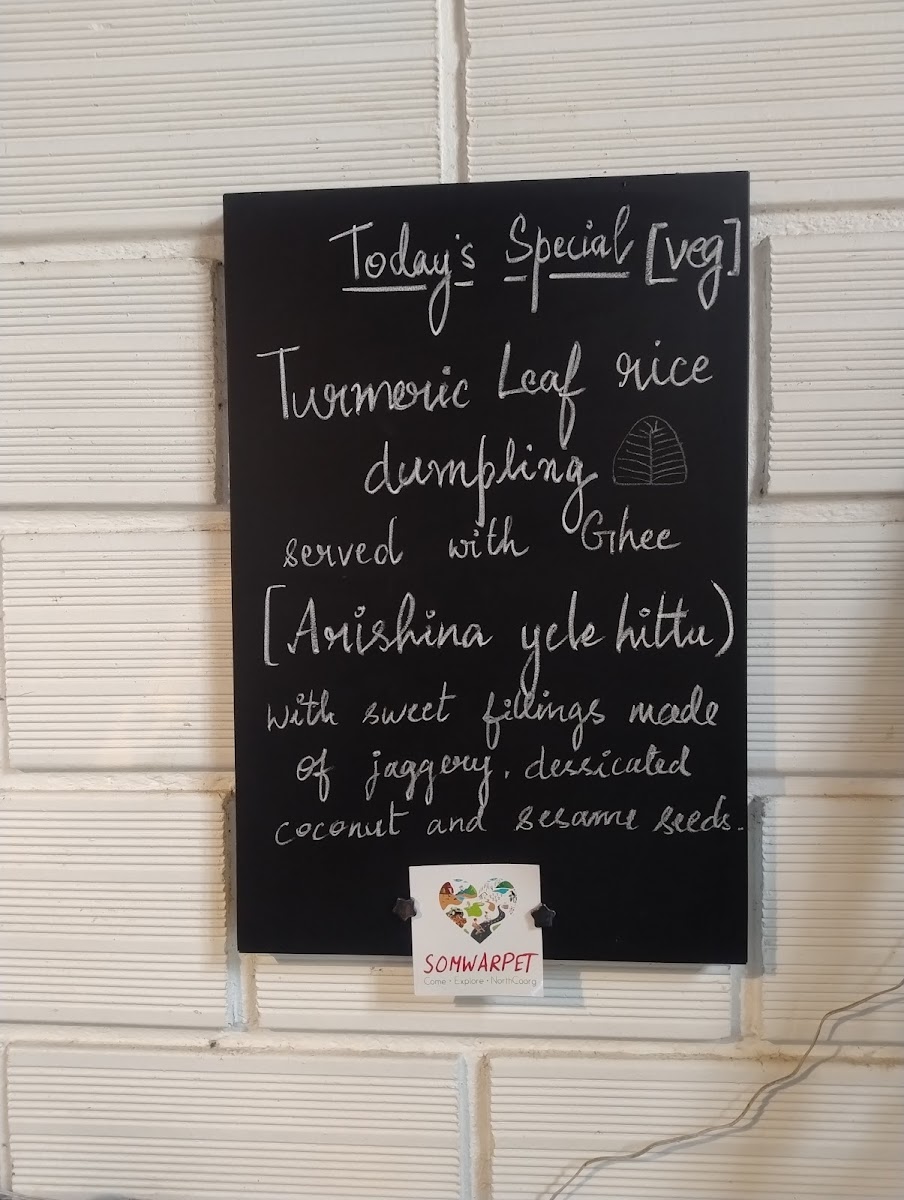 Today's Special [veg]
Turmeric Leaf rice
dumpling
served with Ghee
[Arishina yele hittu)
with sweet fillings made
of jaggery, dessicated
coconut and sesame seeds.
SOMWARPET
Come • Explore • NorthCoorg